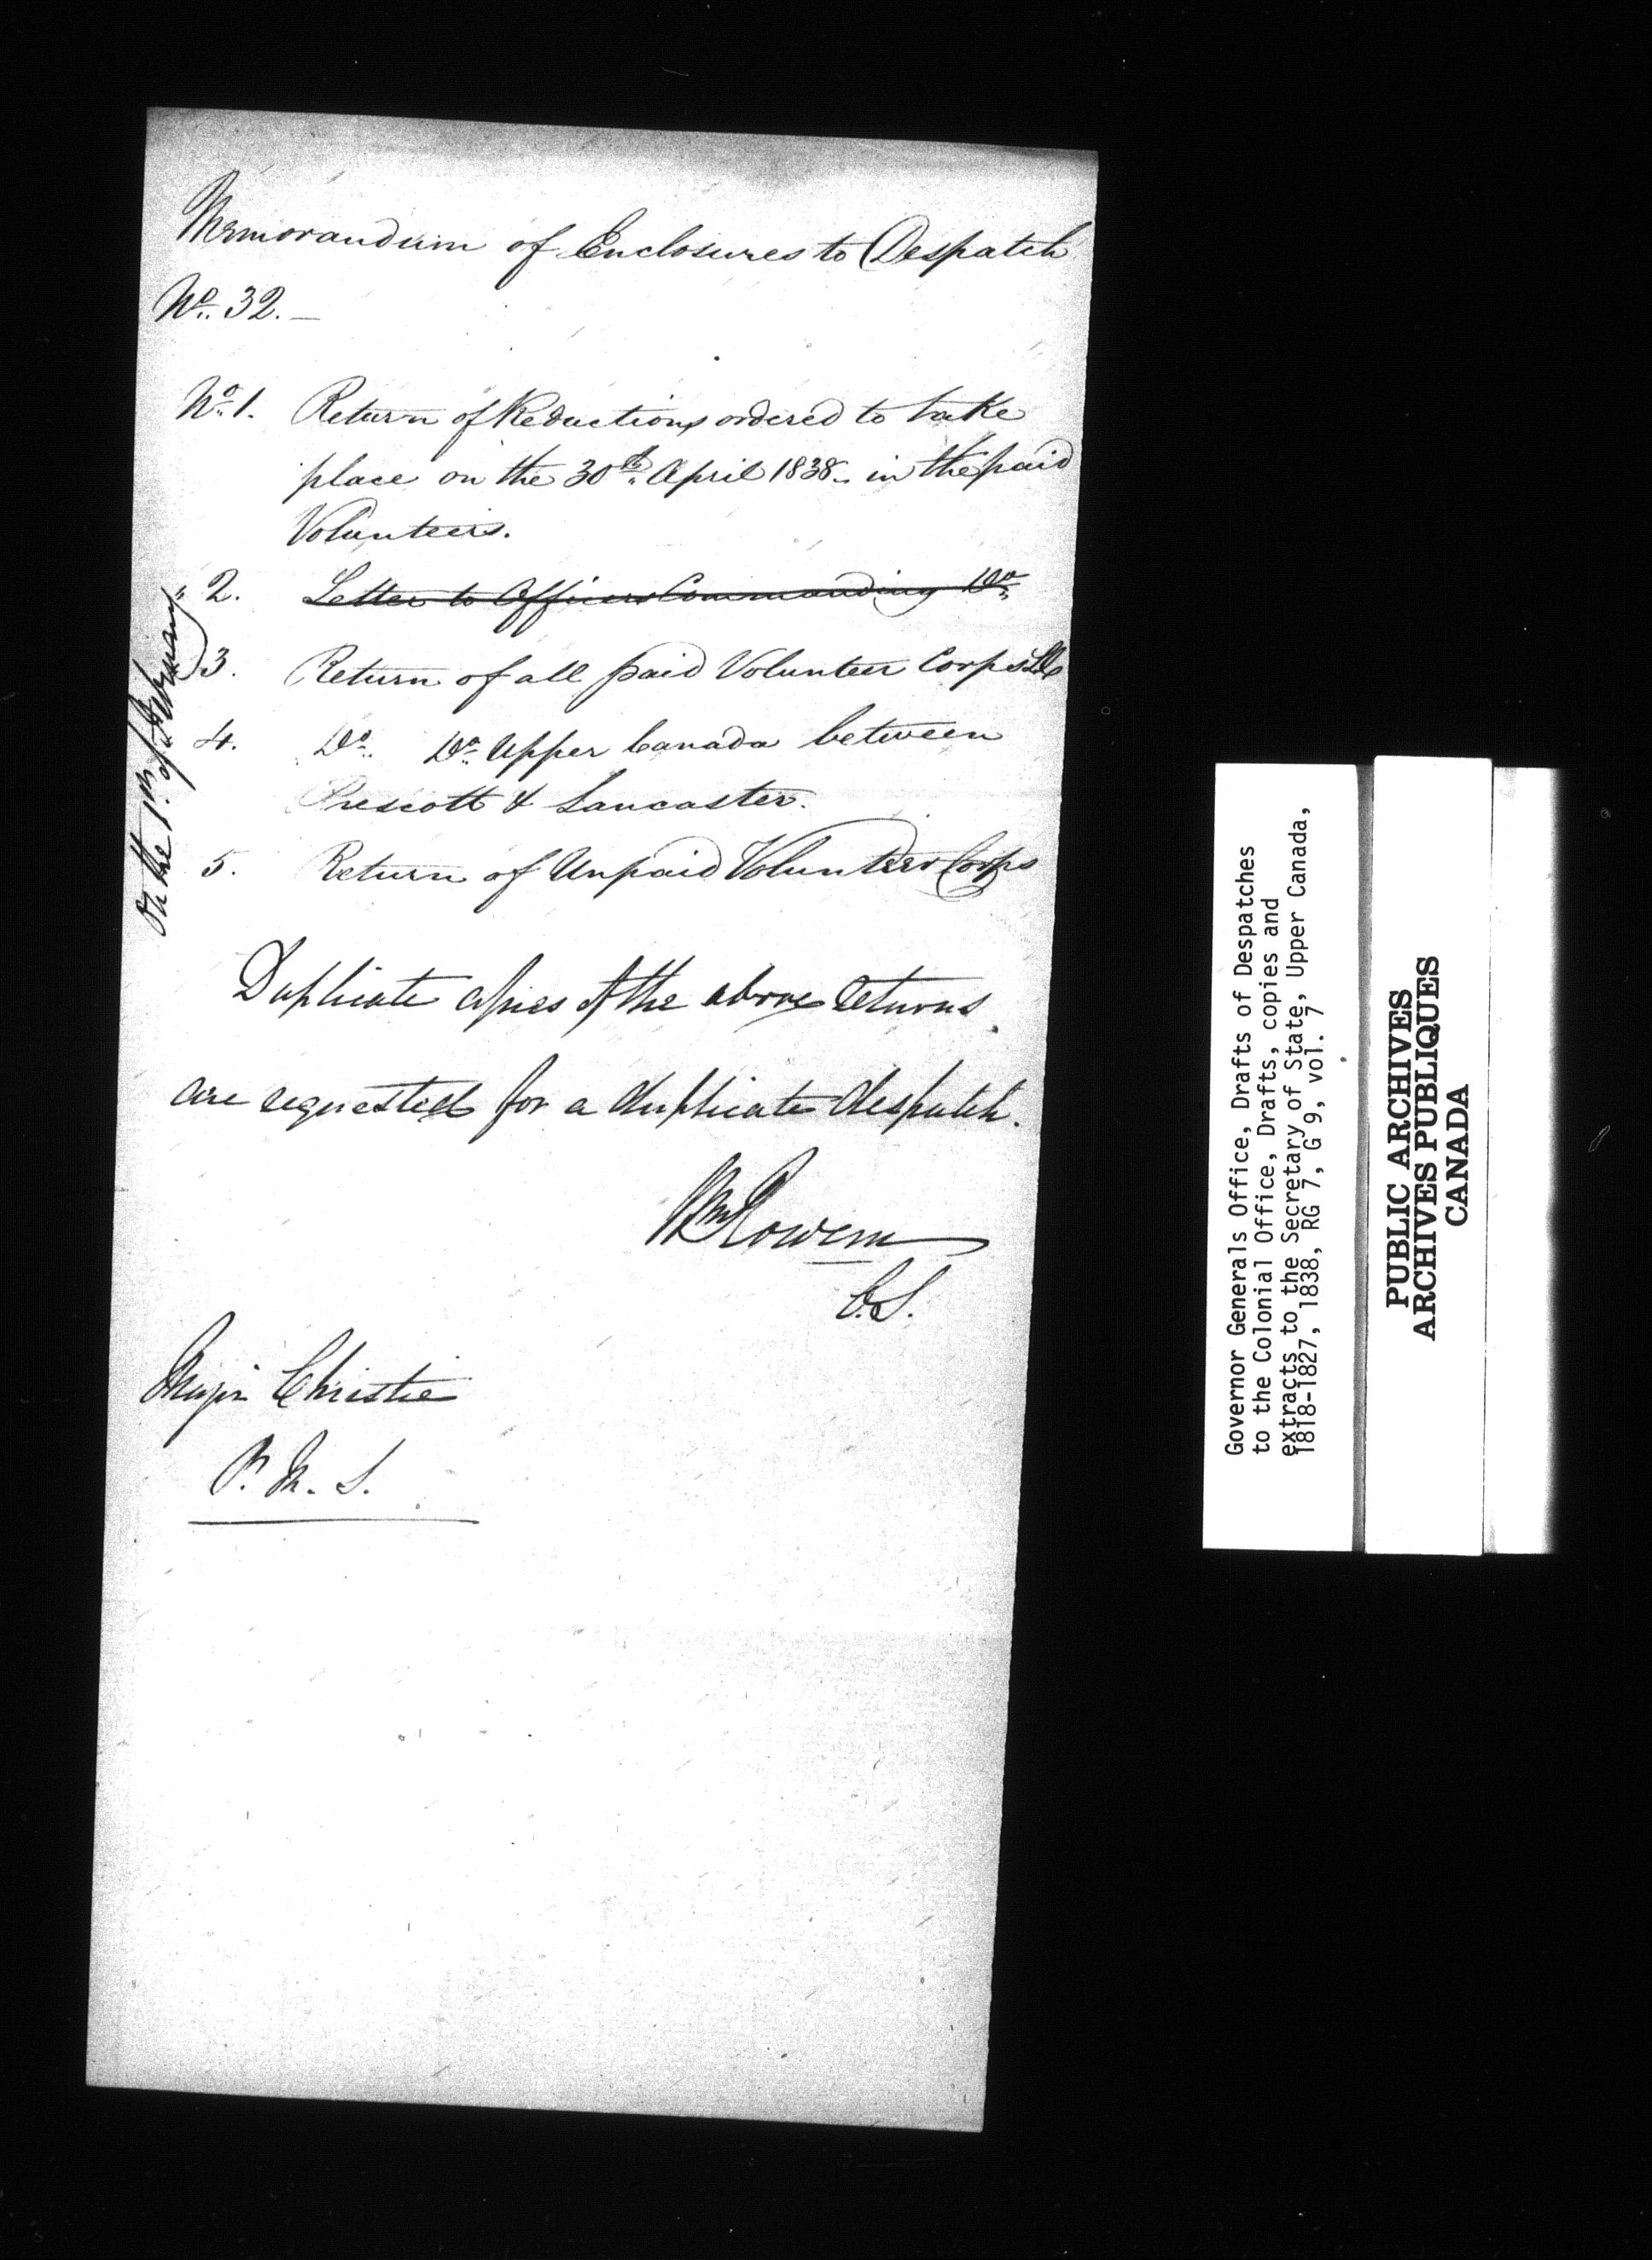 Memorandum of Enclosures to Despatch
No. 32.
No. 1. Return of Reductions ordered to take
place on the 30th. April 1838. in the paid
Volunteers.
" 2. Letter to Officers Commanding Do.
3. Return of all paid Volunteer Corps
4. Do. Do. Upper Canada between
Prescott & Lancaster.
5. Return of Unpaid Volunteer Corps
On the 1st. of February
Duplicate copies of the above returns
are requested for a duplicate despatch.
Wm Rowan
C.S.
Major Christie
P. M. S.
Governor Generals Office, Drafts of Despatches
to the Colonial Office, Drafts, copies and
extracts to the Secretary of State, Upper Canada,
1818-1827, 1838, RG 7, G 9, vol. 7
PUBLIC ARCHIVES
ARCHIVES PUBLIQUES
CANADA